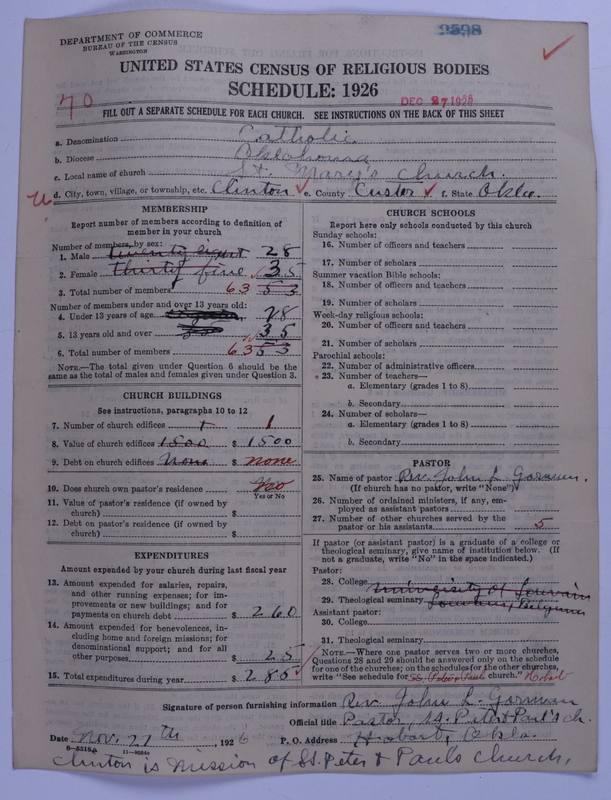 9598
DEPARTMENT OF COMMERCE
BUREAU OF THE CENSUS
WASHINGTON
UNITED STATES CENSUS OF RELIGIOUS BODIES
SCHEDULE: 1926
70
DEC 27 1926
FILL OUT A SEPARATE SCHEDULE FOR EACH CHURCH. SEE INSTRUCTIONS ON THE BACK OF THIS SHEET
a. Denomination Catholic
b. Diocese Oklahoma
c. Local name of church St. Mary's Church.
d. City, town, village, or township, etc. Clinton e. County Custer f. State Okla.
MEMBERSHIP
Report number of members according to definition of
member in your church
Number of members, by sex:
1. Male twenty eight 28
2. Female thirty five 35
3. Total number of members 63 53
Number of members under and over 13 years old:
4. Under 13 years of age 28
5. 13 years old and over 35
6. Total number of members 63 53
NOTE.—The total given under Question 6 should be the
same as the total of males and females given under Question 3.
CHURCH BUILDINGS
See instructions, paragraphs 10 to 12
7. Number of church edifices 1 1
8. Value of church edifices 1500 $ 1500
9. Debt on church edifices None $ none
10. Does church own pastor's residence No
Yes or No
11. Value of pastor's residence (if owned by
church) $
12. Debt on pastor's residence (if owned by
church) $
EXPENDITURES
Amount expended by your church during last fiscal year
13. Amount expended for salaries, repairs,
and other running expenses; for im-
provements or new buildings; and for
payments on church debt $ 260
14. Amount expended for benevolences, in-
cluding home and foreign missions; for
denominational support; and for all
other purposes $ 25
15. Total expenditures during year $ 285
CHURCH SCHOOLS
Report here only schools conducted by this church
Sunday schools:
16. Number of officers and teachers
17. Number of scholars
Summer vacation Bible schools:
18. Number of officers and teachers
19. Number of scholars
Week-day religious schools:
20. Number of officers and teachers
21. Number of scholars
Parochial schools:
22. Number of administrative officers
23. Number of teachers—
a. Elementary (grades 1 to 8)
b. Secondary
24. Number of scholars—
a. Elementary (grades 1 to 8)
b. Secondary
PASTOR
25. Name of pastor Rev. John L. Gorman.
(If church has no pastor, write "None")
26. Number of ordained ministers, if any, em-
ployed as assistant pastors
27. Number of other churches served by the
pastor or his assistants 5
If pastor (or assistant pastor) is a graduate of a college or
theological seminary, give name of institution below. (If
not a graduate, write "No" in the space indicated.)
Pastor:
28. College University of Louvain
29. Theological seminary Louvain, Belgium
Assistant pastor:
30. College
31. Theological seminary
NOTE.—Where one pastor serves two or more churches,
Questions 28 and 29 should be answered only on the schedule
for one of the churches; on the schedules for the other churches,
write "See schedule for SS. Peter & Paul church." Hobart
Signature of person furnishing information Rev. John L. Gorman
Official title Pastor, SS. Peter & Paul's Ch.
Date Nov. 27th, 1926 P. O. Address Hobart, Okla.
8—5518a 11—9034
Clinton is mission of SS. Peter & Paul's Church.